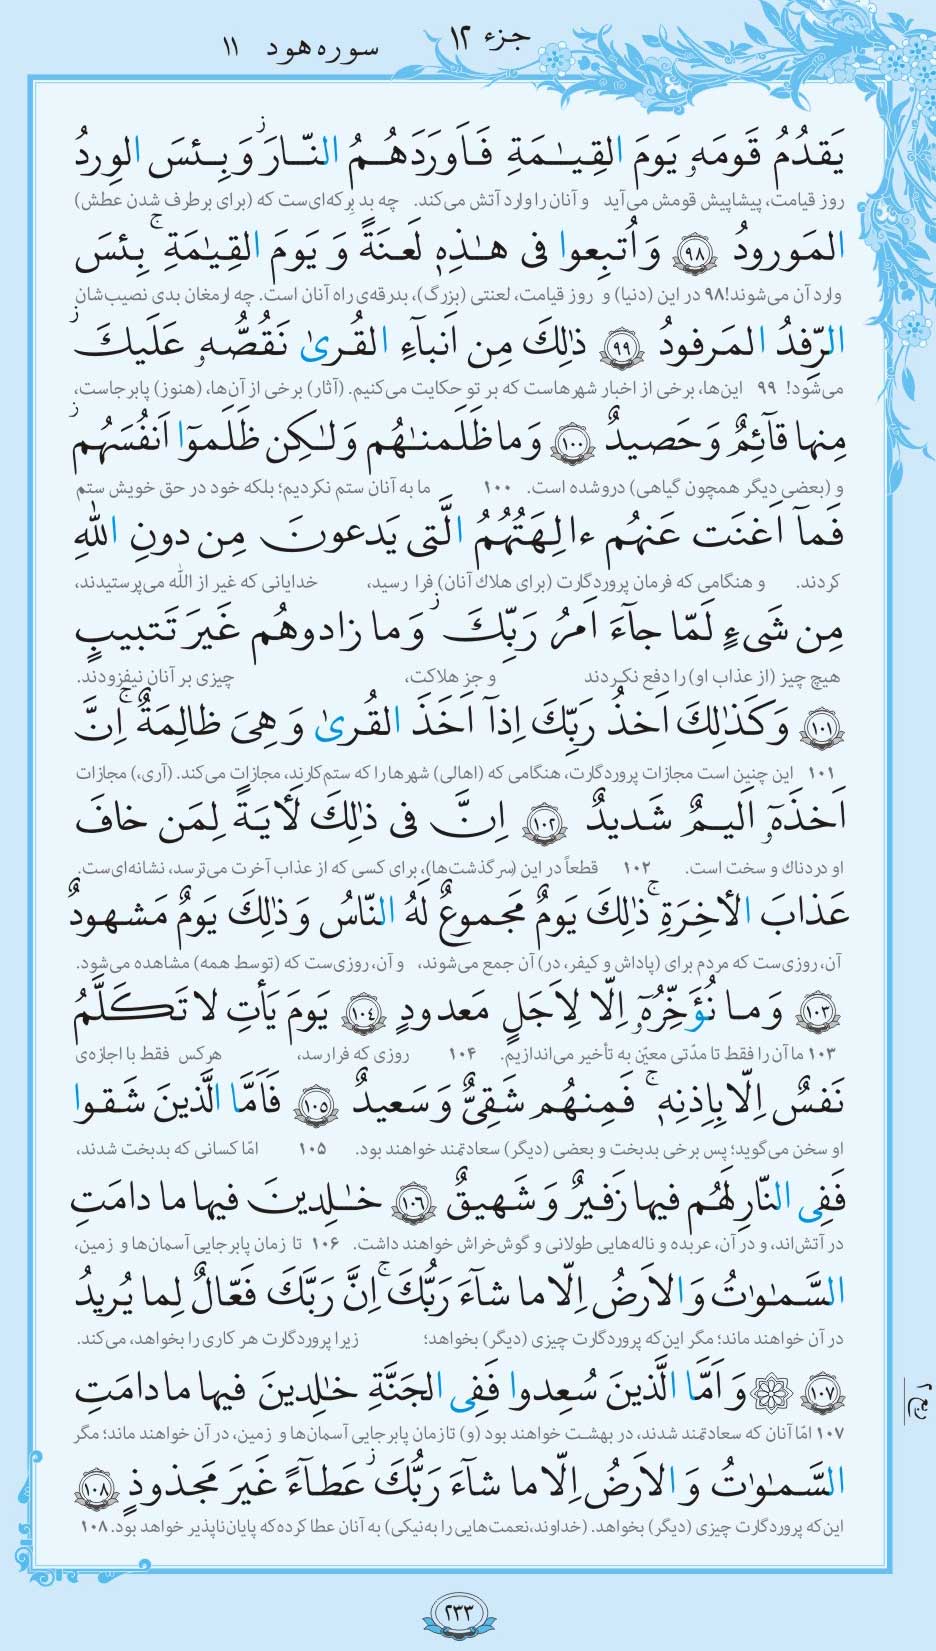 جزء ۱۲
سوره هود ۱۱
يَقدُمُ قَومَهٗ يَومَ القِيٰمَةِ فَاَورَدَهُمُ النّارَ ز وَ بِئسَ الوِردُ
روز قیامت، پیشاپیش قومش می‌آید و آنان را وارد آتش می‌کند. چه بد برکه‌ای‌ست که (برای برطرف شدن عطش)
المَورودُ ﴿۹۸﴾ وَ اُتبِعوا فى هٰذِهٖ لَعنَةً وَ يَومَ القِيٰمَةِ ۚ بِئسَ
وارد آن می‌شوند! ۹۸ در این (دنیا) و روز قیامت، لعنتی (بزرگ)، بدرقه‌ی راه آنان است. چه ارمغان بدی نصیب‌شان
الرِّفدُ المَرفودُ ﴿۹۹﴾ ذٰلِكَ مِن اَنبآءِ القُرىٰ نَقُصُّهٗ عَلَيكَ ز
می‌شود! ۹۹ این‌ها، برخی از اخبار شهرهاست که بر تو حکایت می‌کنیم. (آثار) برخی از آن‌ها، (هنوز) پابرجاست،
مِنها قآئِمٌ وَ حَصيدٌ ﴿۱۰۰﴾ وَ ما ظَلَمنٰهُم وَ لٰكِن ظَلَموٓا اَنفُسَهُم ز
و (بعضی دیگر همچون گیاهی) دروشده است. ۱۰۰ ما به آنان ستم نکردیم؛ بلکه خود در حق خویش ستم
فَمآ اَغنَت عَنهُم ءالِهَتُهُمُ الَّتى يَدعونَ مِن دونِ اللّٰهِ
کردند. و هنگامی که فرمان پروردگارت (برای هلاك آنان) فرا رسید، خدایانی که غیر از الله می‌پرستیدند،
مِن شَىءٍ لَمّا جآءَ اَمرُ رَبِّكَ ز وَ ما زادوهُم غَيرَ تَتبيبٍ
هیچ چیز (از عذاب او) را دفع نکردند و جز هلاکت، چیزی بر آنان نیفزودند.
﴿۱۰۱﴾ وَ كَذٰلِكَ اَخذُ رَبِّكَ اِذآ اَخَذَ القُرىٰ وَ هِىَ ظالِمَةٌ ۚ اِنَّ
۱۰۱ این چنین است مجازات پروردگارت، هنگامی که (اهالی) شهرها را که ستم‌کارند، مجازات می‌کند. (آری،) مجازات
اَخذَهٗٓ اَليمٌ شَديدٌ ﴿۱۰۲﴾ اِنَّ فى ذٰلِكَ لَأيَةً لِمَن خافَ
او دردناك و سخت است. ۱۰۲ قطعاً در این (سرگذشت‌ها)، برای کسی که از عذاب آخرت می‌ترسد، نشانه‌ای‌ست.
عَذابَ الأخِرَةِ ۚ ذٰلِكَ يَومٌ مَجموعٌ لَهُ النّاسُ وَ ذٰلِكَ يَومٌ مَشهودٌ
آن، روزی‌ست که مردم برای (پاداش و کیفر، در) آن جمع می‌شوند، و آن، روزی‌ست که (توسط همه) مشاهده می‌شود.
﴿۱۰۳﴾ وَ ما نُؤَخِّرُهٗٓ اِلّا لِاَجَلٍ مَعدودٍ ﴿۱۰۴﴾ يَومَ يَأتِ لا تَكَلَّمُ
۱۰۳ ما آن را فقط تا مدّتی معیّن به تأخیر می‌اندازیم. ۱۰۴ روزی که فرا رسد، هرکس فقط با اجازه‌ی
نَفسٌ اِلّا بِاِذنِهٖ ۚ فَمِنهُم شَقِىٌّ وَ سَعيدٌ ﴿۱۰۵﴾ فَاَمَّا الَّذينَ شَقوا
او سخن می‌گوید؛ پس برخی بدبخت و بعضی (دیگر) سعادتمند خواهند بود. ۱۰۵ امّا کسانی که بدبخت شدند،
فَفِى النّارِ لَهُم فيها زَفيرٌ وَ شَهيقٌ ﴿۱۰۶﴾ خٰلِدينَ فيها ما دامَتِ
در آتش‌اند، و در آن، عربده و ناله‌هایی طولانی و گوش‌خراش خواهند داشت. ۱۰۶ تا زمان پابرجایی آسمان‌ها و زمین،
السَّمٰوٰتُ وَ الاَرضُ اِلّا ما شآءَ رَبُّكَ ۚ اِنَّ رَبَّكَ فَعّالٌ لِما يُريدُ
در آن خواهند ماند؛ مگر این‌که پروردگارت چیزی (دیگر) بخواهد؛ زیرا پروردگارت هر کاری را بخواهد، می‌کند.
﴿۱۰۷﴾ وَ اَمَّا الَّذينَ سُعِدوا فَفِى الجَنَّةِ خٰلِدينَ فيها ما دامَتِ
۱۰۷ امّا آنان که سعادتمند شدند، در بهشت خواهند بود (و) تا زمان پابرجایی آسمان‌ها و زمین، در آن خواهند ماند؛ مگر
السَّمٰوٰتُ وَ الاَرضُ اِلّا ما شآءَ رَبُّكَ ز عَطآءً غَيرَ مَجذوذٍ ﴿۱۰۸﴾
این‌که پروردگارت چیزی (دیگر) بخواهد. (خداوند، نعمت‌هایی را به‌نیکی) به آنان عطا کرده که پایان‌ناپذیر خواهد بود. ۱۰۸
۲۳۳